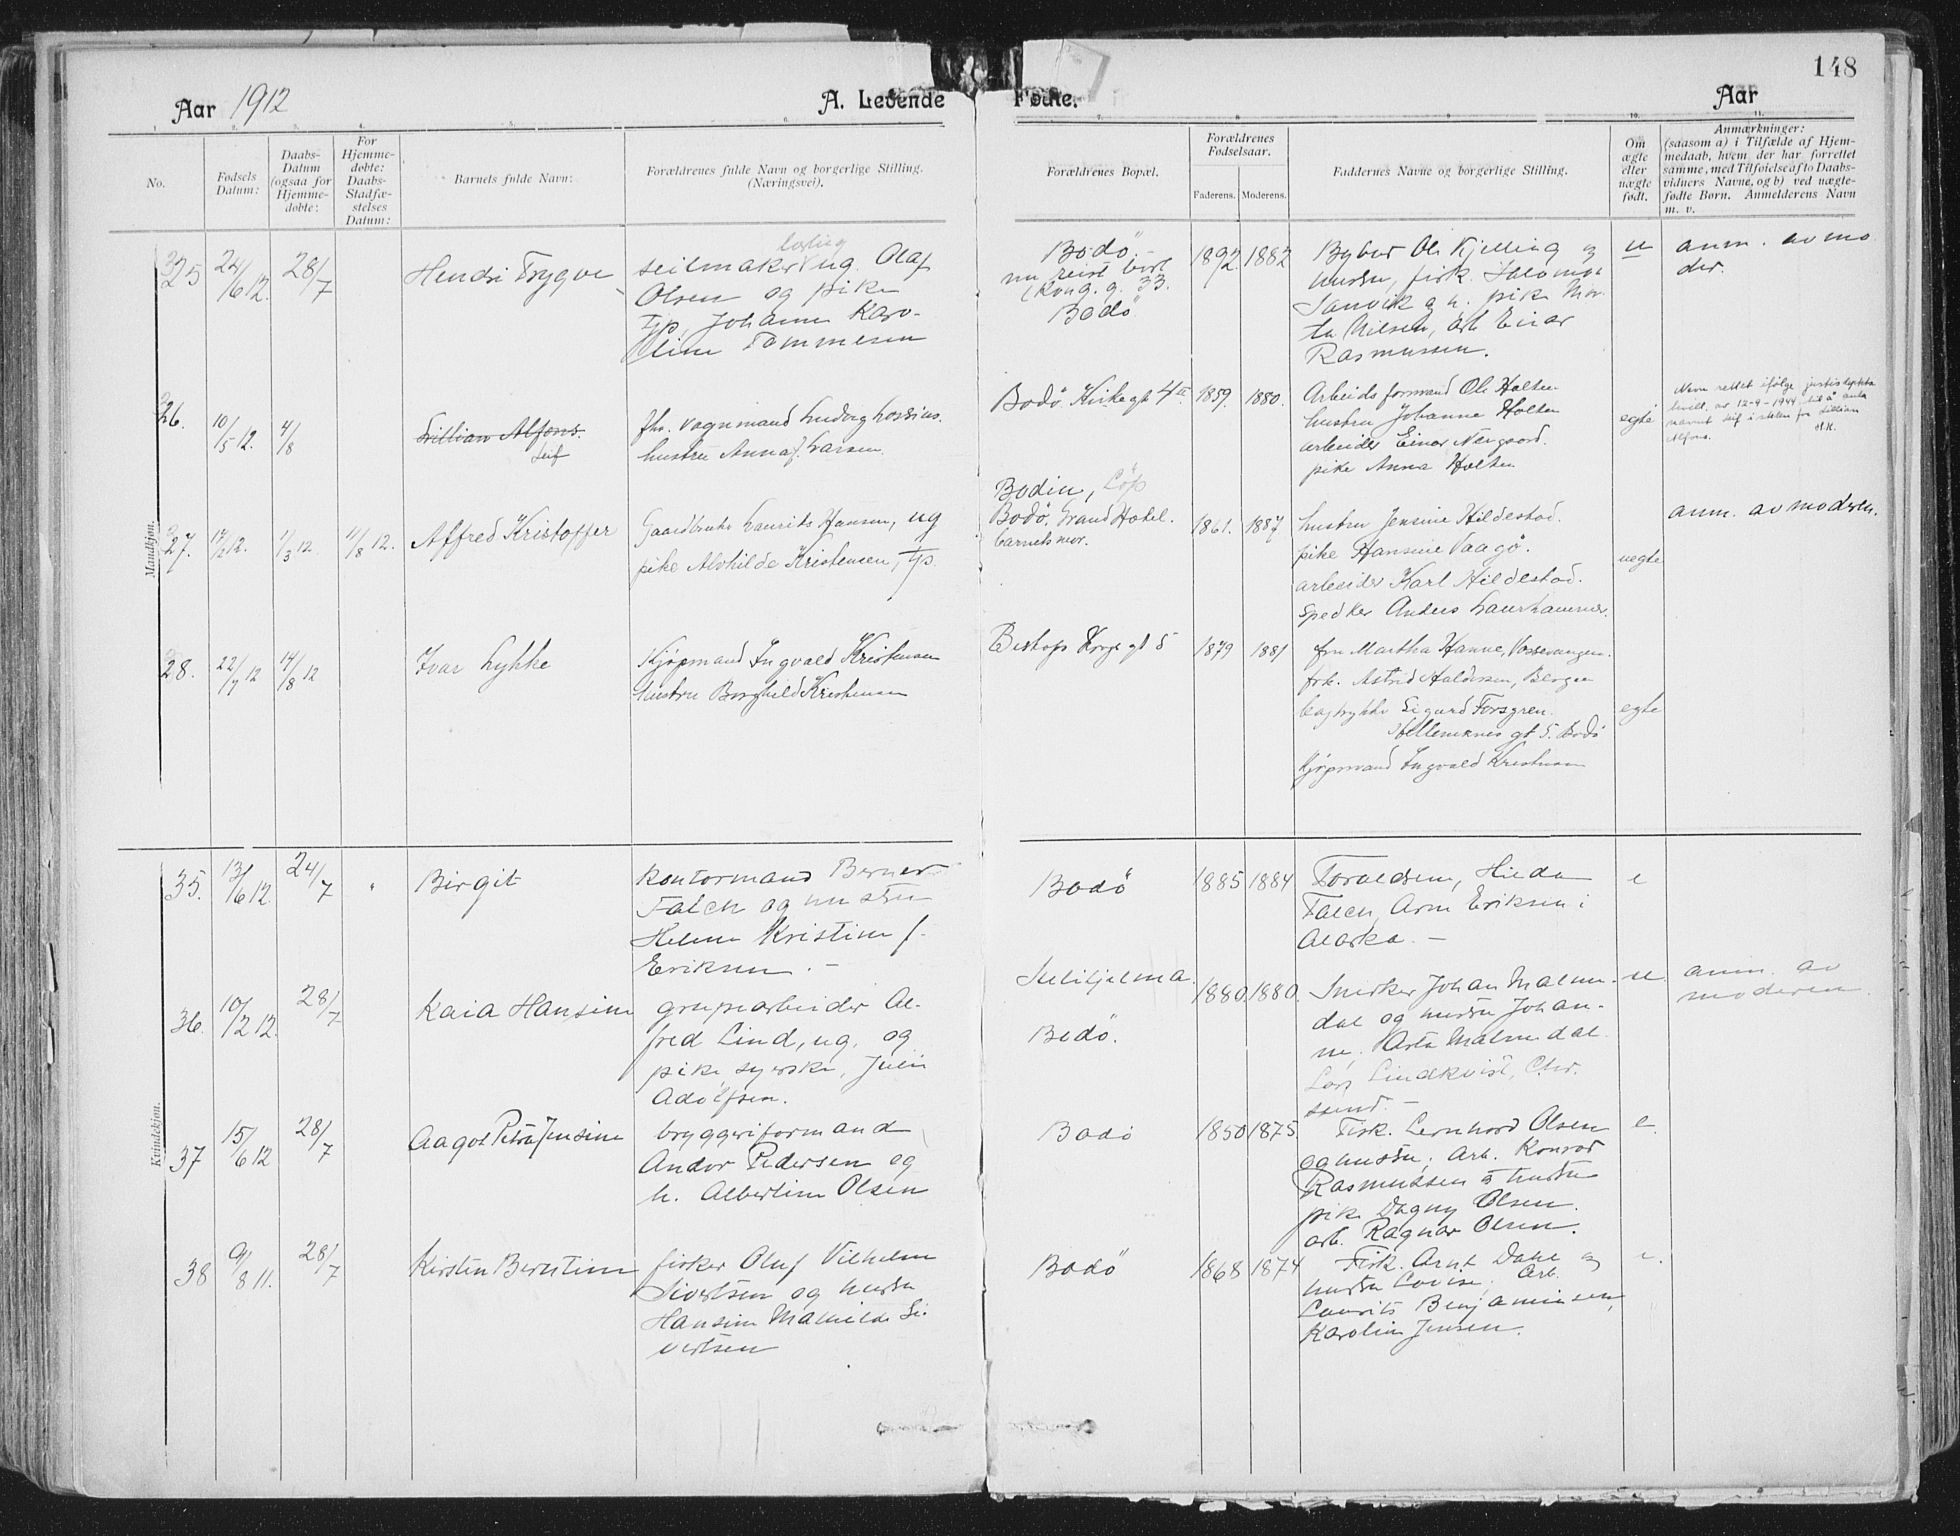 148
Aar 1912
A. Levende
Fødte.
Aar
1. 2. 3. 4. 5. 6. 7. 8. 9. 10. 11.
No.
Fødsels Datum:
Daabs-
Datum
(ogsaa for
Hjemme-
døbte:
For
Hjemme-
døbte:
Daabs-
Stadfæ-
stelses
Datum:
Barnets fulde Navn:
Forældrenes fulde Navn og borgerlige Stilling.
(Næringsvei).
Forældrenes Bopæl.
Forældrenes
Fødselsaar.
Faderens. Moderens.
Faddernes Navne og borgerlige Stilling.
Om
ægte
eller
uægte
født.
Anmærkninger:
(saasom a) i Tilfælde af Hjem-
medaab, hvem der har forrettet
samme, med Tilføielse af to Daabs-
vidners Navne, og b) ved uægte-
fødte Børn. Anmelderens Navn
m. v.
Mandkjøn.
25 24/6 12. 28/7 Hendri Trygve
seilmaker ug. Olaf
Olsen og pike
Johanne Karo-
line Tommesen
Bodö
nu reist bort
(Kong. g. 33.
Bodö
1892. 1882
Ole Kjelling og
hustru, fisk.
h. pike Mar-
ta Nilsen, arb. Einar
Rasmussen.
u
anm. av mo
der.
26. 10/5 12. 4/8 Lillian Alfons.
Leif
fhv. Vognmand Ludvig
hustru Anna f. Larsen.
Bodö Kirkegt 4 II 1859. 1880.
Arbeidsformand Ole Holten
hustru Johanne Holten
arbeider Einar
pike Anna Holten
egte
Navn rettet ifølge justisdepts
av 12-9-1944 til å
navnet Leif i steden for Lillian
Alfons.
27. 14/2 12. 1/3 12. 11/8 12. Alfred Kristoffer
Gaardbruker Laurits Hansen, ug
pike Alvhilde Kristensen,
Bodin, Löp
Bodö. Grand Hotel.
barnets mor.
1861. 1887
hustru Jensine Hildestad.
pike Hansine Vaagö.
arbeider Karl Hildestad.
Anders
uegte
anm. av moderen.
28. 22/7 12 14/8 12 Ivar Lykke
Kjøpmand Ingvald Kristensen
hustru Borghild Kristensen
1879 1881
fru Martha Hanne, Vossevangen.
frk. Astrid Haldorsen, Bergen
Sigurd Forsgren.
gt 5. Bodö
Kjøpmand Ingvald Kristensen
egte
Kvindekjøn.
35. 13/6 12. 24/7 " Birgit
kontormand Berner
Falch og hustru
Helene Kristine f.
Eriksen. -
Bodö 1885 1884
Foraldrene, Hilda
Falch, Arne Eriksen i
Alaska. -
e
36. 10/2 12. 28/7 Kaia Hansine
grupearbeider Al-
fred Lind, ug. og
pike syerske, Julie
Adolfsen.
Sulitjelma
Bodö.
1880. 1880.
Snekker Johan Malme-
dal og hustru Johan-
ne, Malmedal
Lindkvist, Chr.
u.
anm. av
moderen
37 15/6 12 28/7 Aagot Petra Jensine
bryggeriformand
Andor Pedersen og
h. Albertine Olsen
Bodö 1850 1875.
Fisk. Lernhard Olsen
og hustru, Arb. Konrad
Rasmussen & hustru
pike Dagny Olsen.
arb. Ragnar Olsen.
e.
38 9/8 11. 28/7 Kirstin Berntine
fisker Oluf Vilhelm
Sivertsen og hustru
Hansine Mathilde Si-
vertsen
Bodö 1868 1874
Fisk. Arnt Dahl og
hustru Lovise, Arb.
Laurits Benjaminsen,
Karoline Jensen.
e.